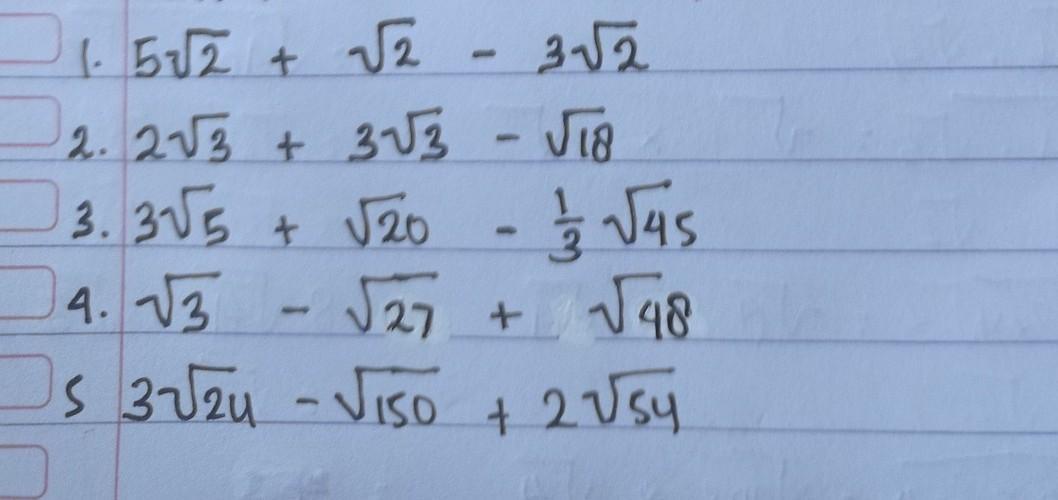 1. 5√2 + √2 - 3√2
2. 2√3 + 3√3 - √18
3. 3√5 + √20 - 1/3 √45
4. √3 - √27 + √48
5 3√24 - √150 + 2√54